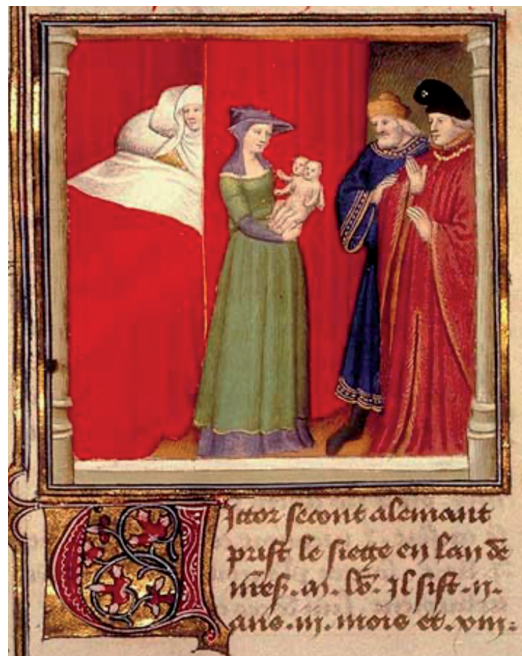 Victor secont alemant
prist le siege en lan de
nres. m. lv. Il sist .ii.
ans .iii. mois et .xviii.